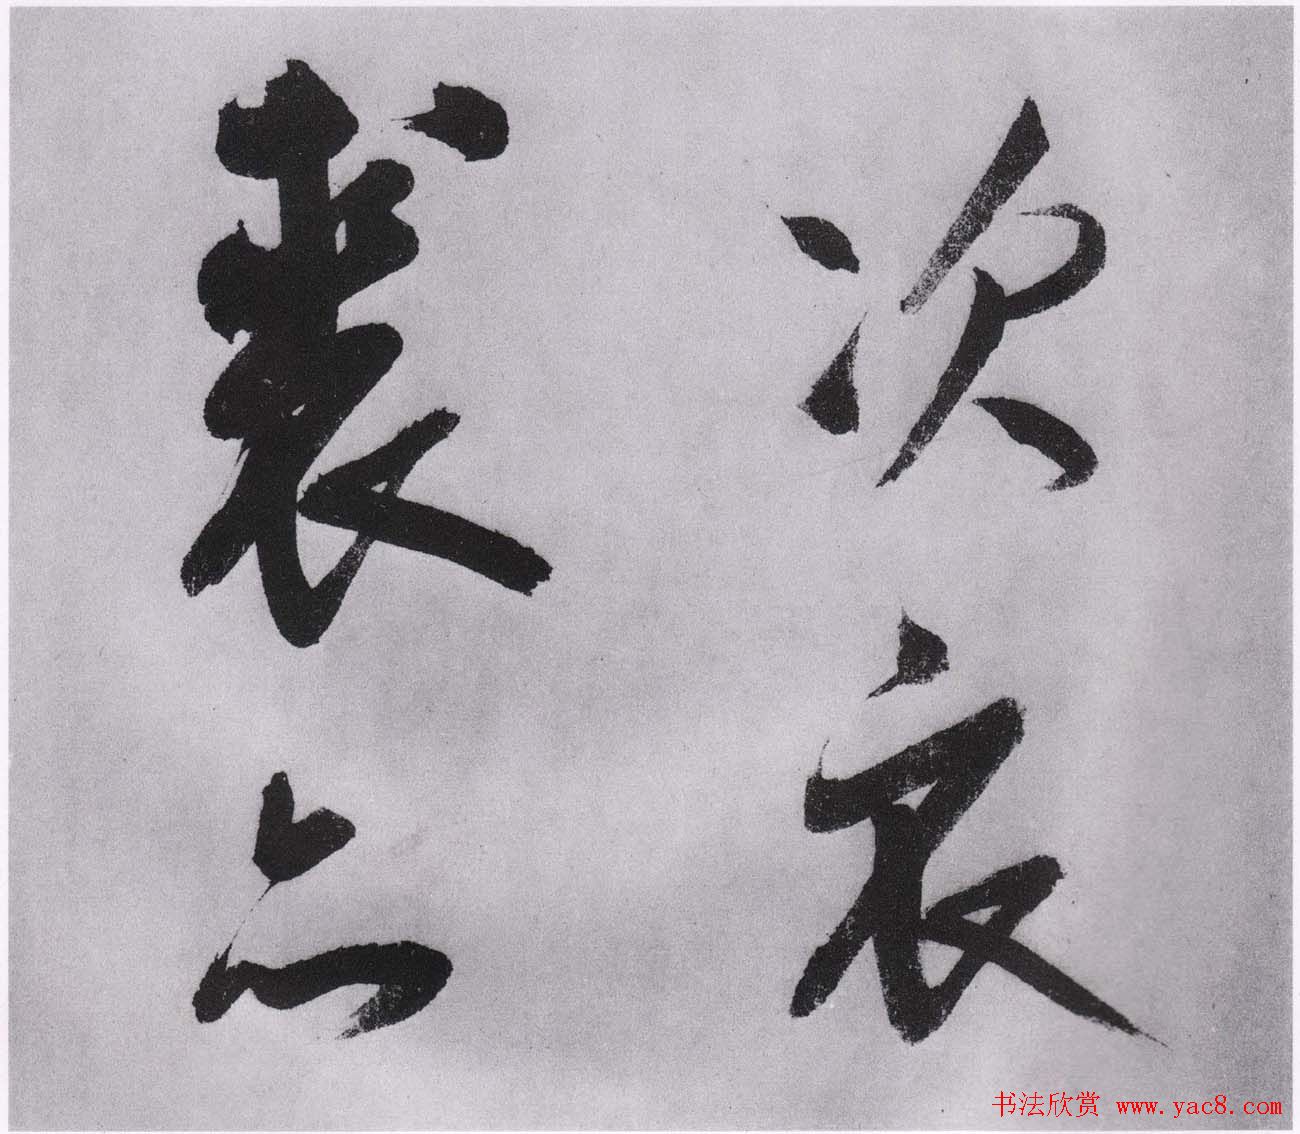 次衣
裘
书法欣赏 www.yac8.com